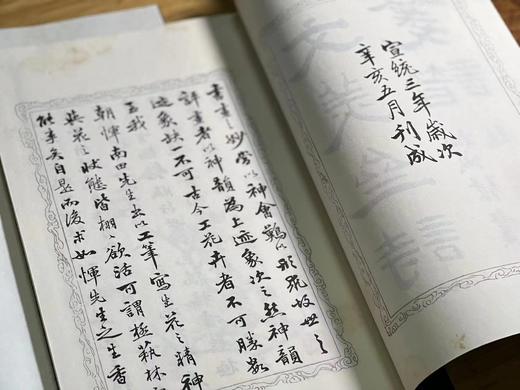 宣統三年歲次
辛亥五月刊成
書畫之妙當以神會難以形故世之
評畫者以神韻為上迹象次之然神韻
迹象缺一不可古今工花卉者不可勝數
至我
朝惲南田先生出以工筆寫生花之精神
與花之狀態皆栩栩欲活可謂極藝林之
能事矣自是而後求如惲先生之生香